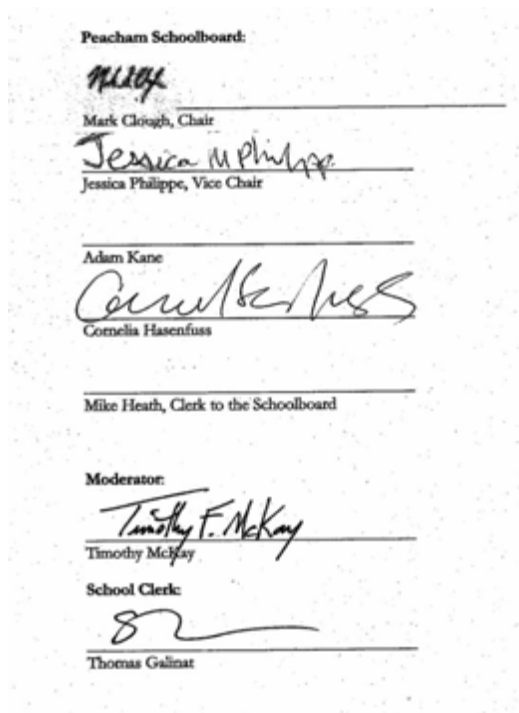 Peacham Schoolboard:
Mark Clough, Chair
Jessica M Philippe
Jessica Philippe, Vice Chair
Adam Kane
Cornelia Hasenfuss
Mike Heath, Clerk to the Schoolboard
Moderator:
Timothy F. McKay
Timothy McKay
School Clerk:
Thomas Galinat